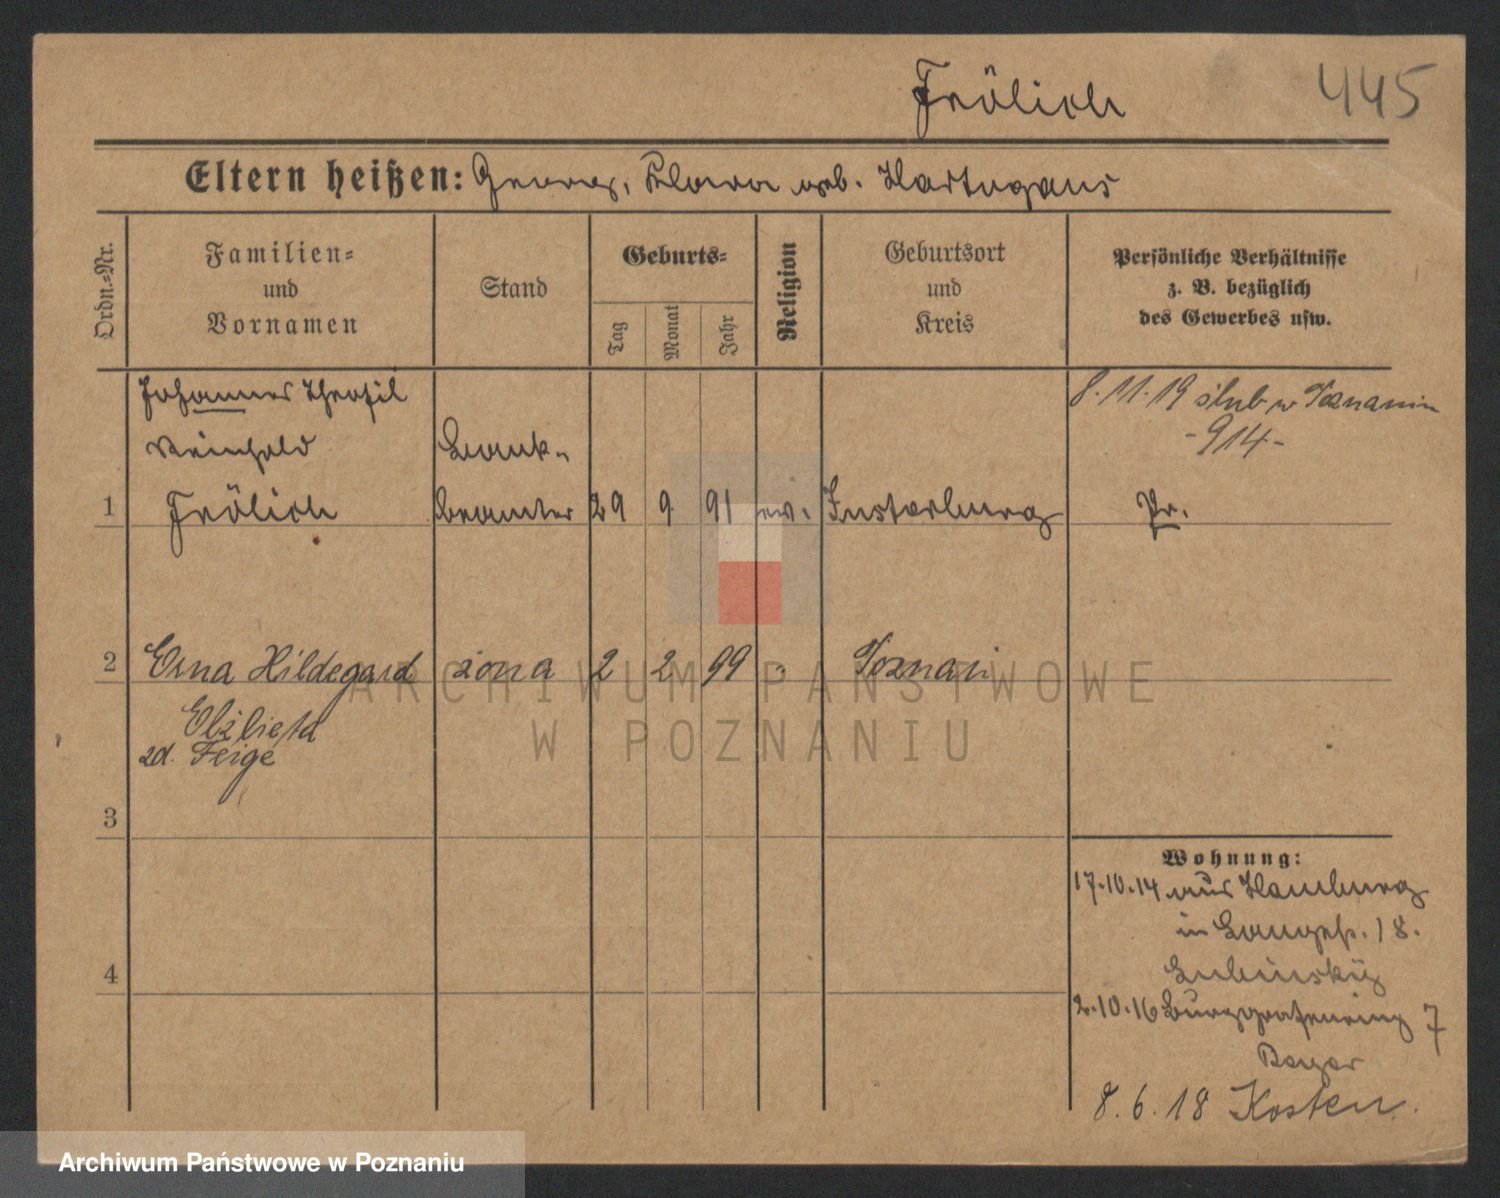 Frölich 445
Eltern heißen: Georg, Klara geb. Hartogans
Ordn.=Nr.
Familien=
und
Vornamen
Stand
Geburts=
Tag
Monat
Jahr
Religion
Geburtsort
und
Kreis
Persönliche Verhältnisse
z. B. bezüglich
des Gewerbes usw.
Johannes Theofil
Reinhold
1 Frölich
Bank-
beamter
29 9 91 ev. Insterburg
8.11.19 ślub w Poznaniu
-914-
Pr.
2 Erna Hildegard żona 2 2 99 Poznań
Elżbieta
zd. Feige
3
4
Wohnung:
17.10.14 aus Hamburg
in Langestr. 18.
Lubinsky
2.10.16 Burggrafenring 7
Bayer
8.6.18 Kosten.
ARCHIWUM PAŃSTWOWE
W POZNANIU
Archiwum Państwowe w Poznaniu